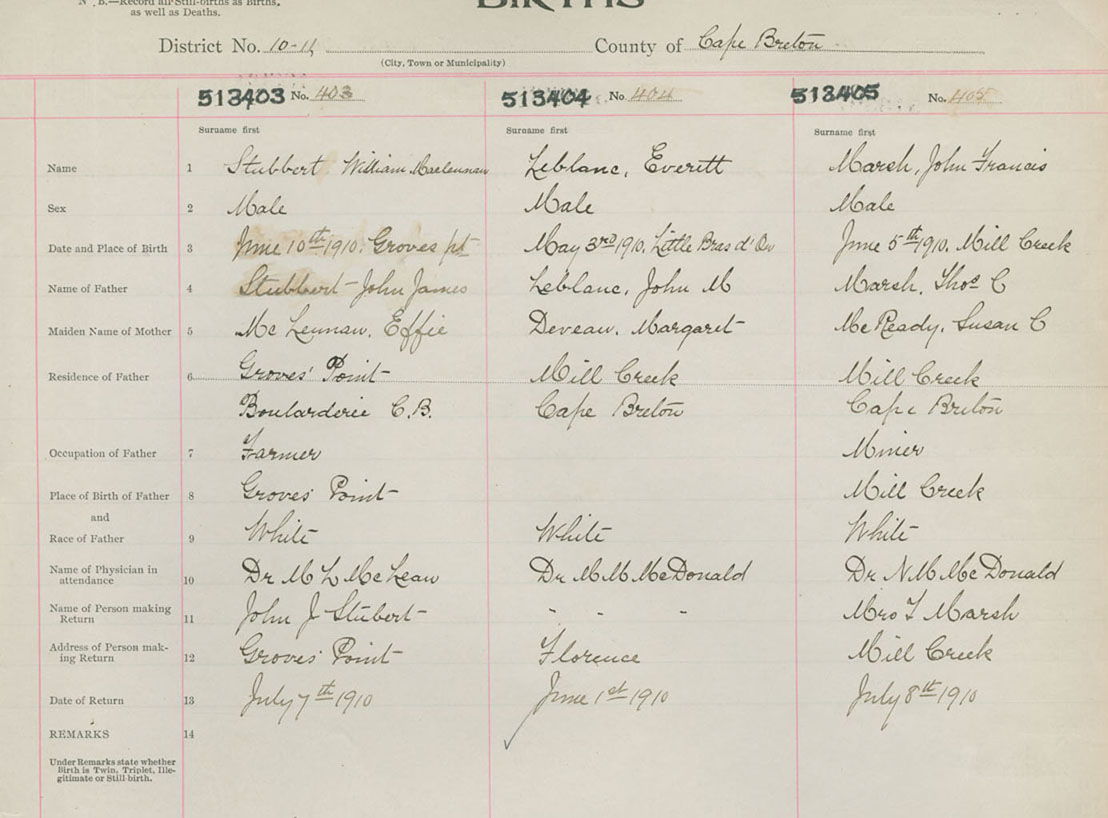 N. B.—Record all Still-births as Births,
as well as Deaths.
BIRTHS
District No. 10-14 County of Cape Breton
(City, Town or Municipality)
513403 No. 403 513404 No. 404 513405 No. 405
Surname first Surname first Surname first
Name 1 Stubbert William Maclennan Leblanc, Everett Marsh, John Francis
Sex 2 Male Male Male
Date and Place of Birth 3 June 10th 1910. Groves pt May 3rd 1910, Little Bras d'Or June 5th 1910, Mill Creek
Name of Father 4 Stubbert - John James Leblanc, John M Marsh, Thos C
Maiden Name of Mother 5 Mc Lennan, Effie Deveau, Margaret McReady, Susan C
Residence of Father 6 Groves' Point Mill Creek Mill Creek
Boularderie C.B. Cape Breton Cape Breton
Occupation of Father 7 Farmer Miner
Place of Birth of Father 8 Groves' Point Mill Creek
and
Race of Father 9 White White White
Name of Physician in
attendance 10 Dr M L McLean Dr M M McDonald Dr N M McDonald
Name of Person making
Return 11 John J Stubert " " " Mrs T Marsh
Address of Person mak-
ing Return 12 Groves' Point Florence Mill Creek
Date of Return 13 July 7th 1910 June 1st 1910 July 8th 1910
REMARKS 14
Under Remarks state whether
Birth is Twin, Triplet, Ille-
gitimate or Still-birth.